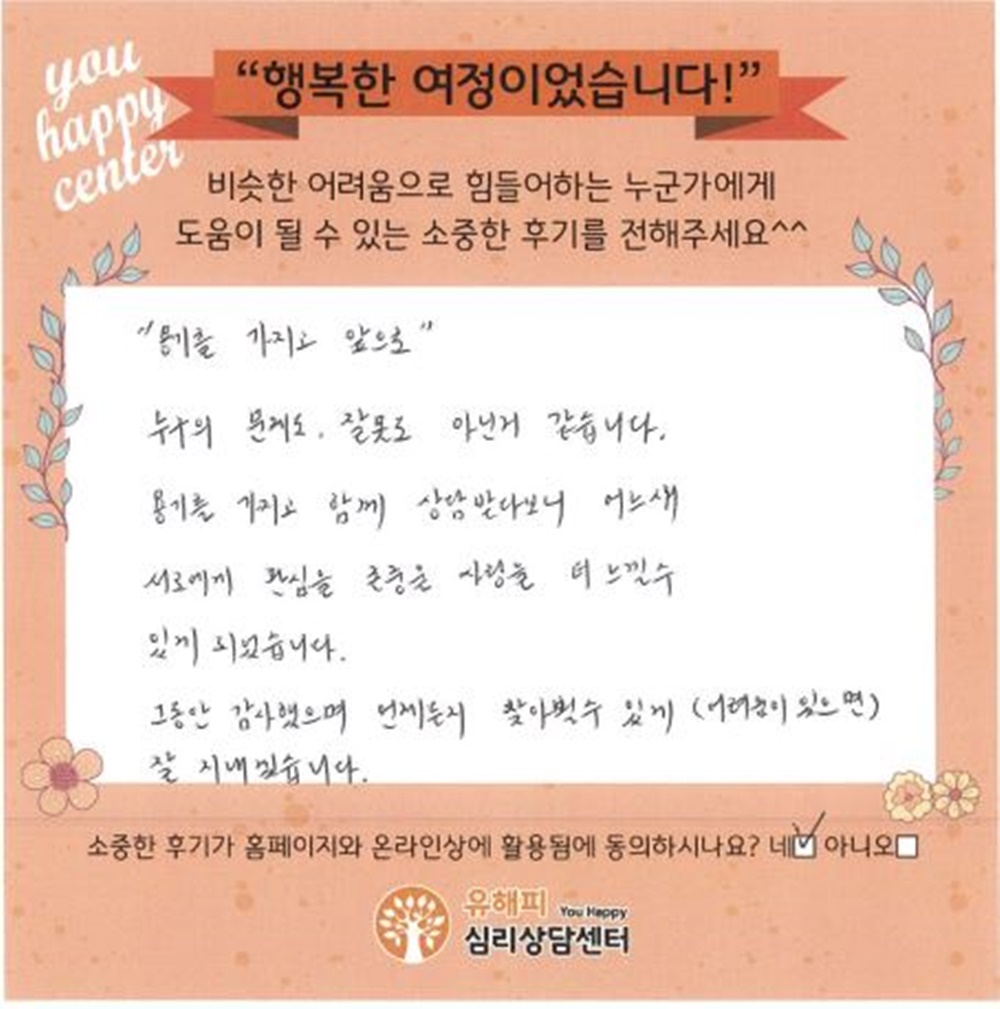 you
happy
center
“행복한 여정이었습니다!”
비슷한 어려움으로 힘들어하는 누군가에게
도움이 될 수 있는 소중한 후기를 전해주세요^^
"용기를 가지고 앞으로"
누구의 문제도. 잘못도 아닌거 같습니다.
용기를 가지고 함께 상담받다보니 어느새
서로에게 관심을 존중은 사랑을 더 느낄수
있게 되었습니다.
그동안 감사했으며 언제든지 찾아뵐수 있게 (어려움이 있으면)
잘 지내겠습니다.
소중한 후기가 홈페이지와 온라인상에 활용됨에 동의하시나요? 네☑ 아니오☐
유해피 You Happy
심리상담센터